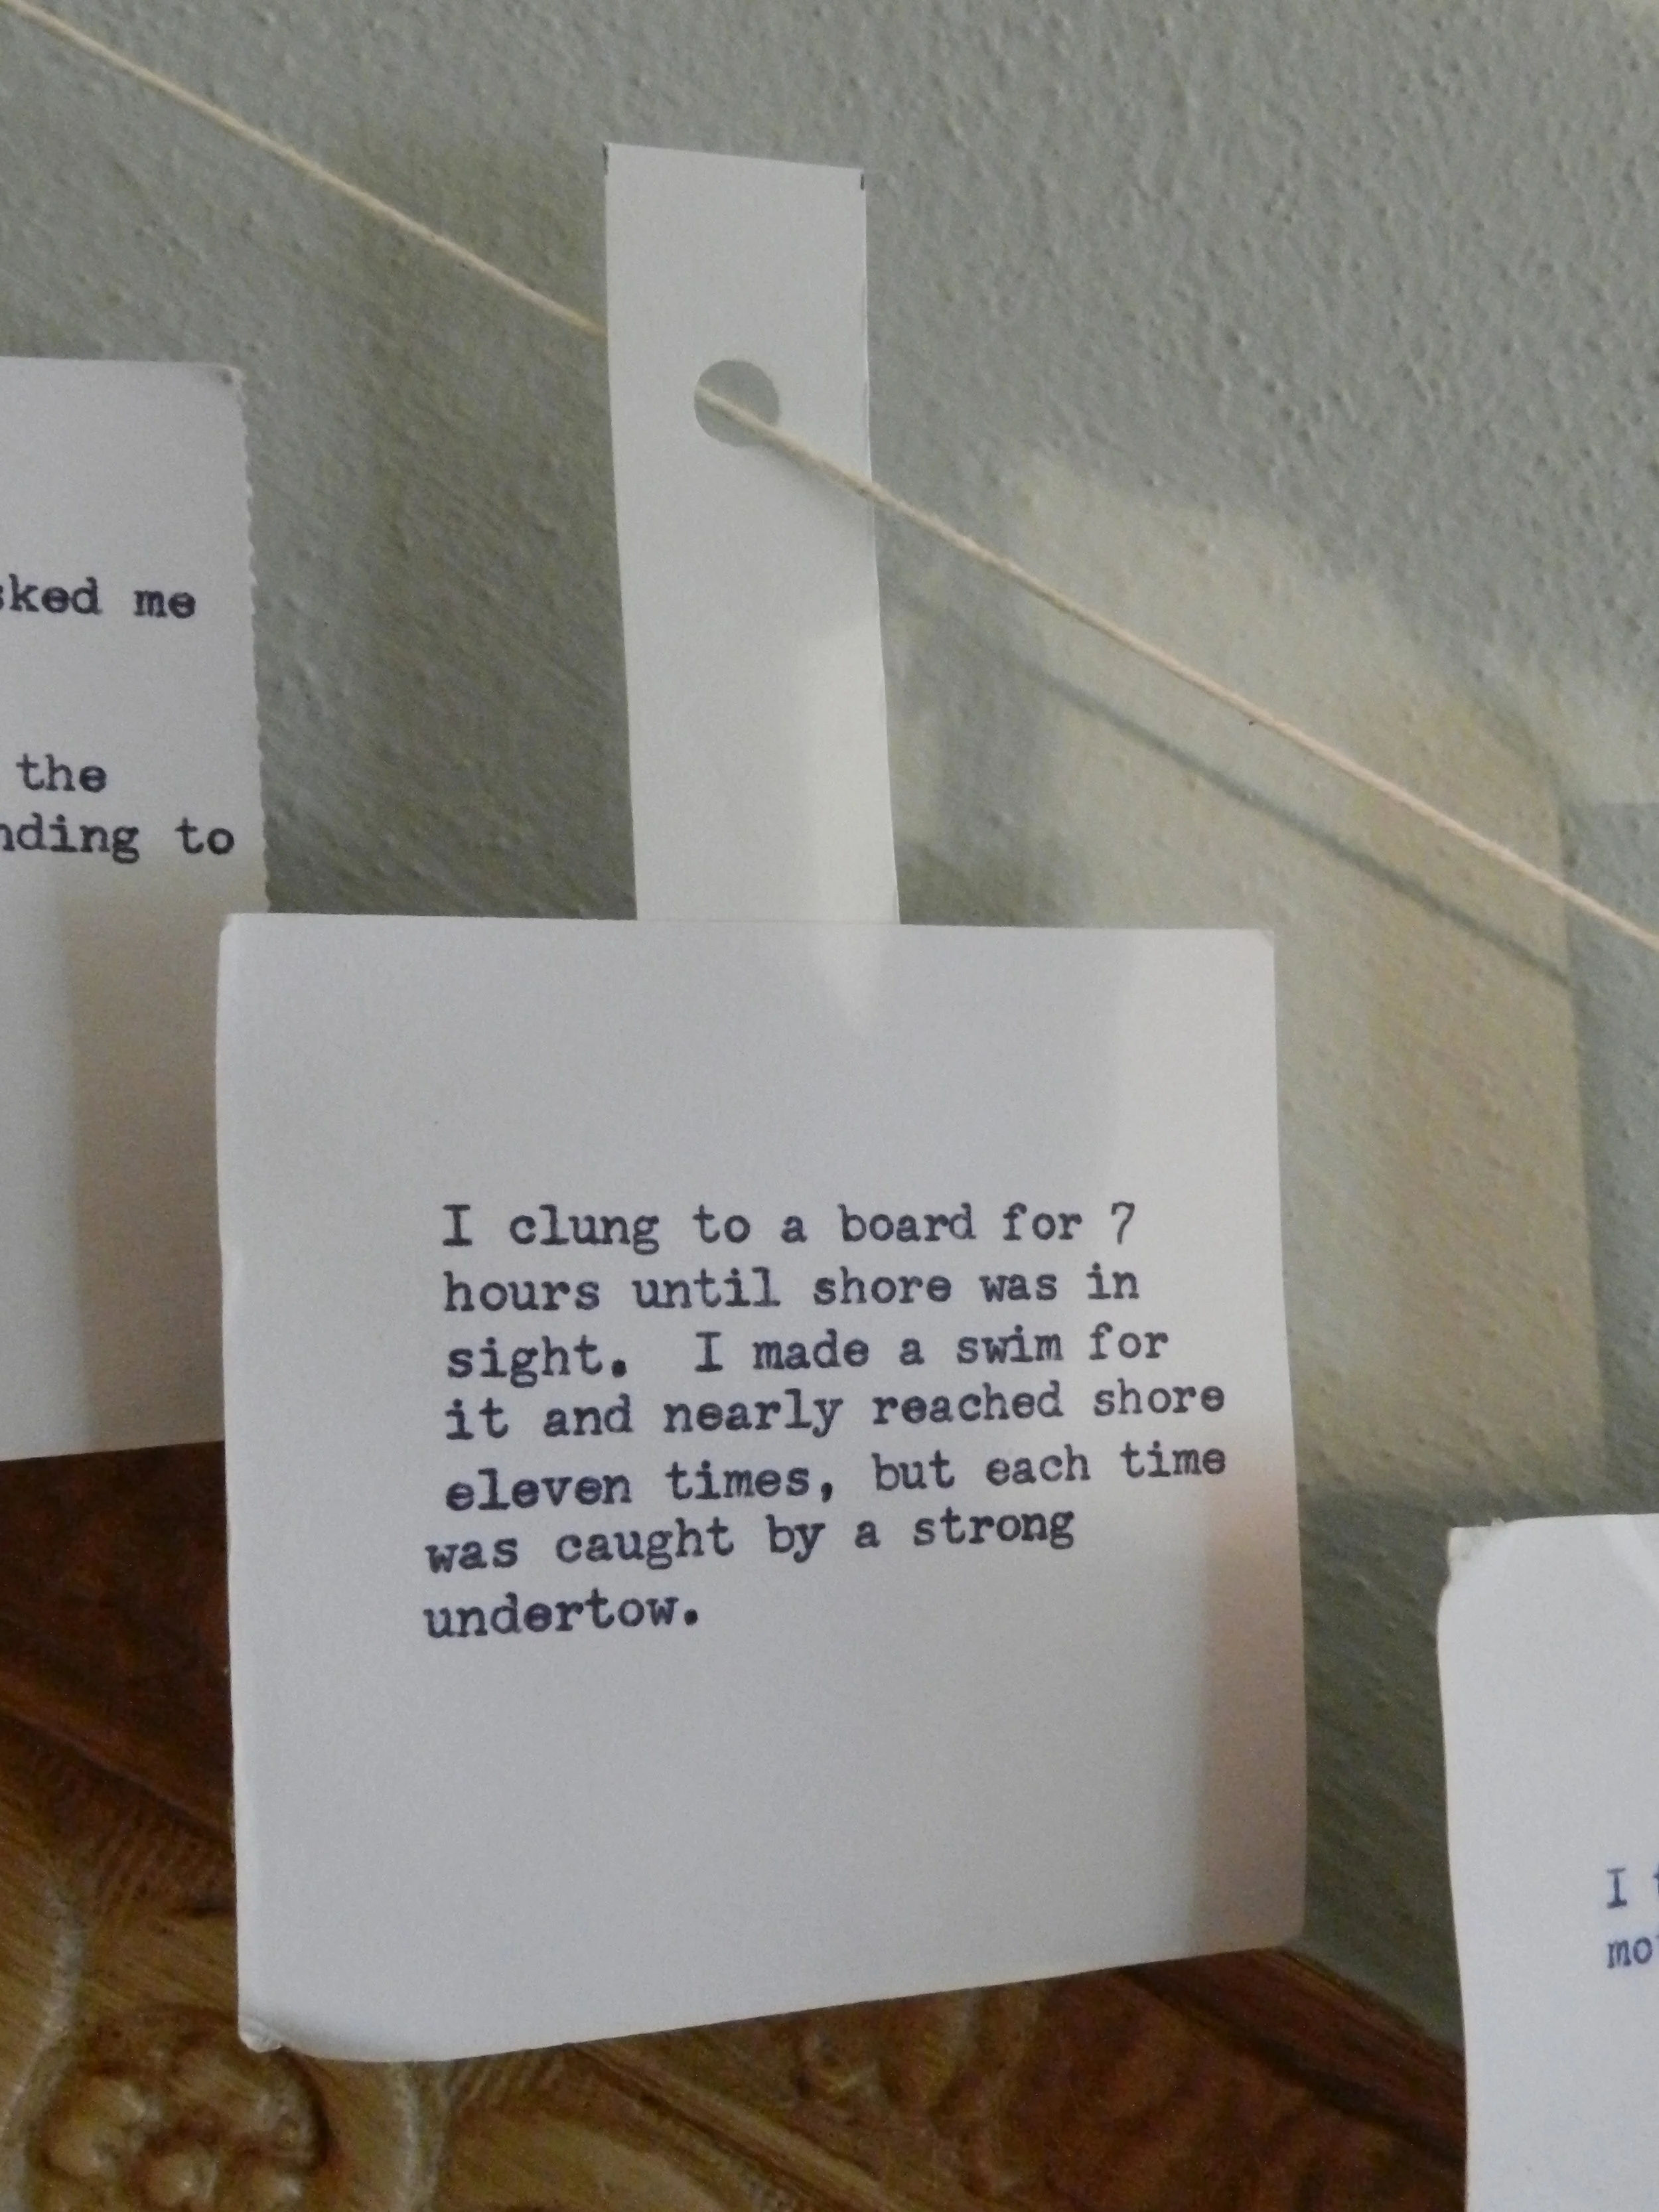 sked me
the
nding to
I clung to a board for 7
hours until shore was in
sight. I made a swim for
it and nearly reached shore
eleven times, but each time
was caught by a strong
undertow.
I
mo